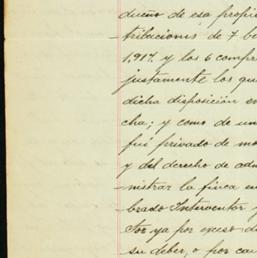 dueño de esa propie
tribuciones de 7 be
1,917. y los 6 compr
justamente los que
dicha disposición en
cha; y como de un
fuí privado de mo
y del derecho de adm
nistrar la finca en
brado Interventor y
tor ya por exceso de
su deber, o por cau